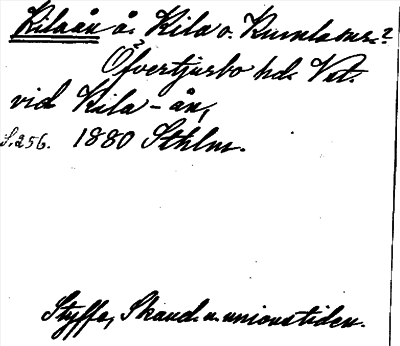 Kilaån å. Kila o. Kumla sns.?
Öfvertjurbo hd. Vstl.
vid Kila-ån,
S.256. 1880 Sthlm.
Styffe, Skand. u. unionstiden.